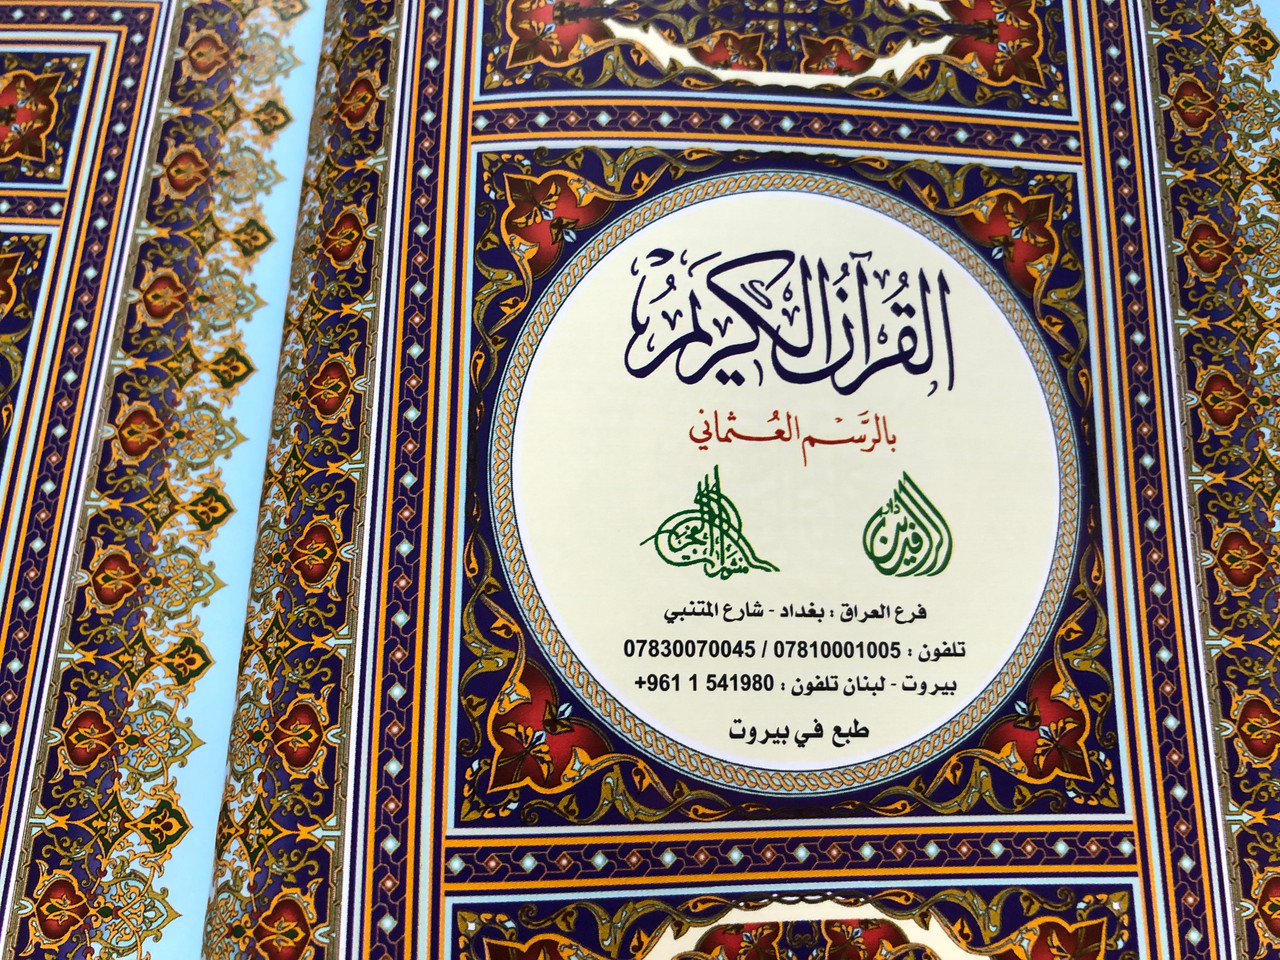 القُرآنُ الكَرِيمُ
بالرَّسْمِ العُثماني
دار الرافدين
منشورات الفجر
فرع العراق : بغداد - شارع المتنبي
تلفون : 07810001005 / 07830070045
بيروت - لبنان تلفون : 541980 1 961+
طبع في بيروت